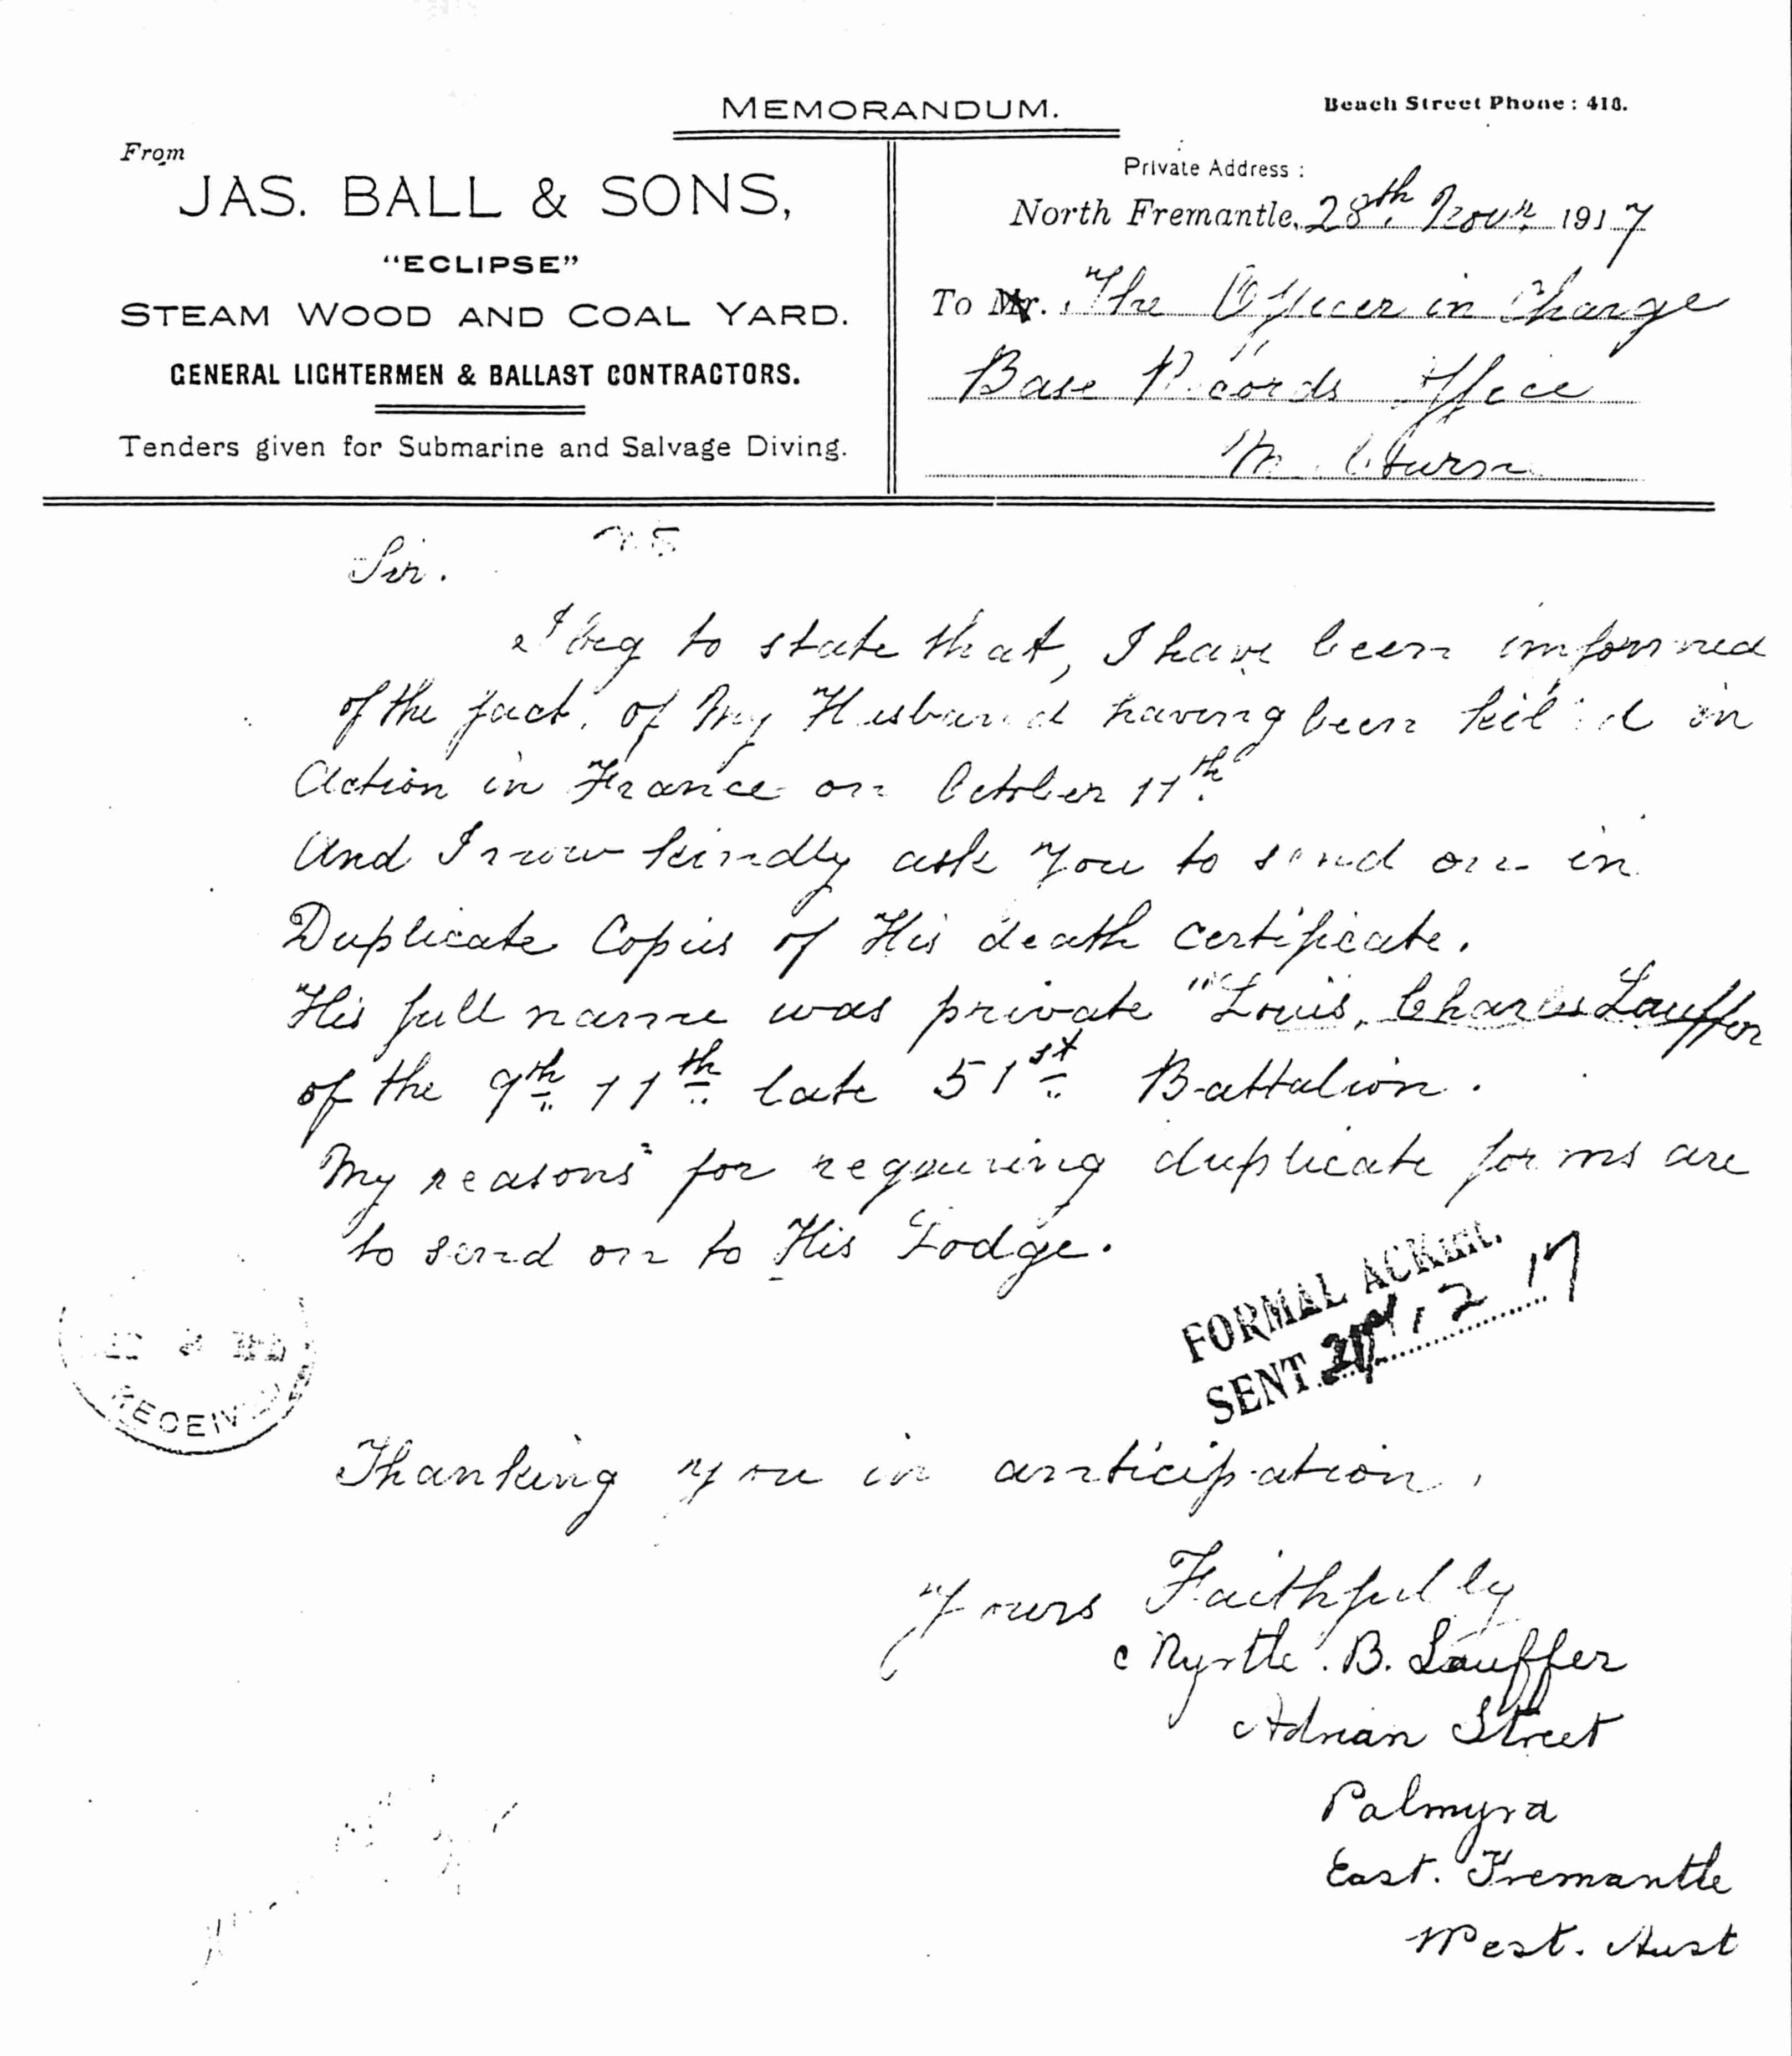 MEMORANDUM.
Beach Street Phone: 418.
From
JAS. BALL & SONS,
"ECLIPSE"
STEAM WOOD AND COAL YARD.
GENERAL LIGHTERMEN & BALLAST CONTRACTORS.
Tenders given for Submarine and Salvage Diving.
Private Address:
North Fremantle, 28th Novr. 1917
To Mr. The Officer in Charge
Base Records Office
Sir.
I beg to state that, I have been informed
of the fact, of My Husband having been kil d in
Action in France on October 17th.
And I now kindly ask you to send on in
Duplicate Copies of His death certificate.
His full name was private "Louis, Charles Lauffer
of the 9th 11th late 51st Battalion.
My reasons for requiring duplicate forms are
to send on to His Lodge.
FORMAL ACKMT.
SENT 12 17
RECEIV
Thanking you in anticipation,
Yours Faithfully
Myrtle. B. Lauffer
Adrian Street
Palmyra
East. Fremantle
West. Aust